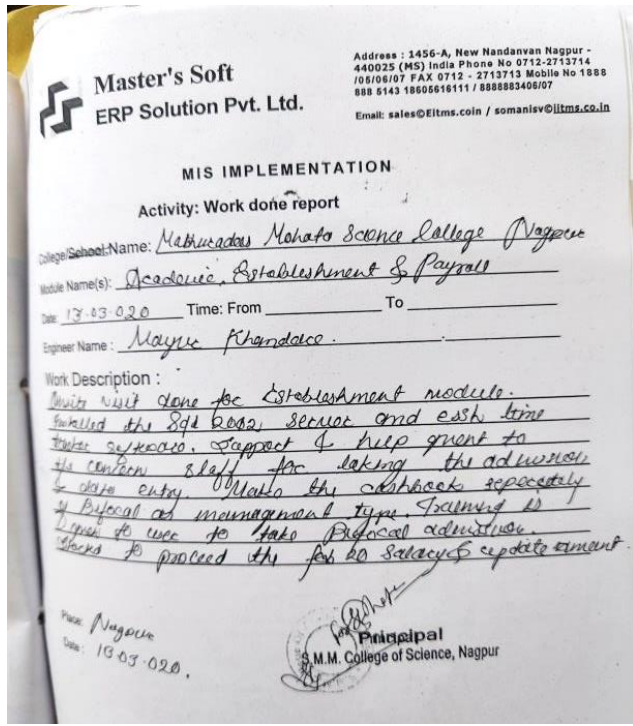 Master's Soft
ERP Solution Pvt. Ltd.
Address : 1456-A, New Nandanvan Nagpur -
440025 (MS) India Phone No 0712-2713714
/05/06/07 FAX 0712 - 2713713 Mobile No 1888
888 5143 18605616111 / 8888883406/07
Email: sales©Eitms.coin / somanisv©iitms.co.in
MIS IMPLEMENTATION
Activity: Work done report
College/School Name: Mathuradas Mohata Science College Nagpur
Module Name(s): Academic, Establishment & Payroll
Date: 13-03-020 Time: From To
Engineer Name : Mayur Khandare.
Work Description :
Onsite visit done for Establishment module.
Installed the Sql 2002, server and essh time
software. Support & help to
the concern staff for taking the admission
& data entry. Make the cashbook seperately
of Bifocal as management type. Training is
given to user to take Bifocal admission.
to proceed the feb 20 salary & update
Place: Nagpur
Date: 13-03-020.
Principal
S.M.M. College of Science, Nagpur